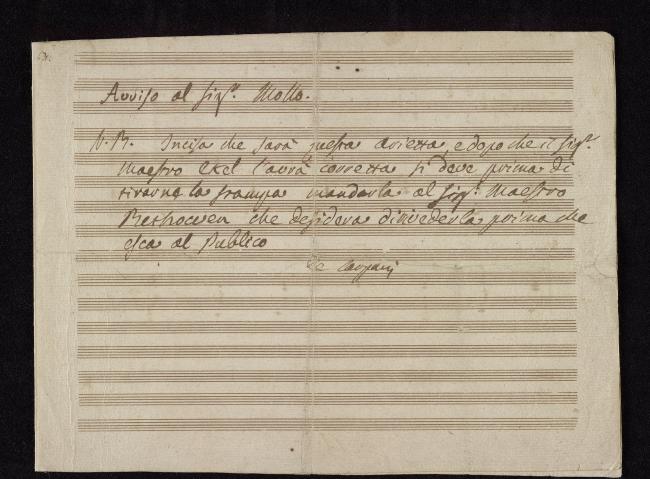 Avviso al Sigr. Mollo.
N.B. Incisa che sarà questa arietta, e dopo che il Sigr.
Maestro l'avrà corretta si deve prima di
tirarne la stampa mandarla al Sigr. Maestro
Bethowen che desidera di rivederla prima che
esca al Publico
De Carpani